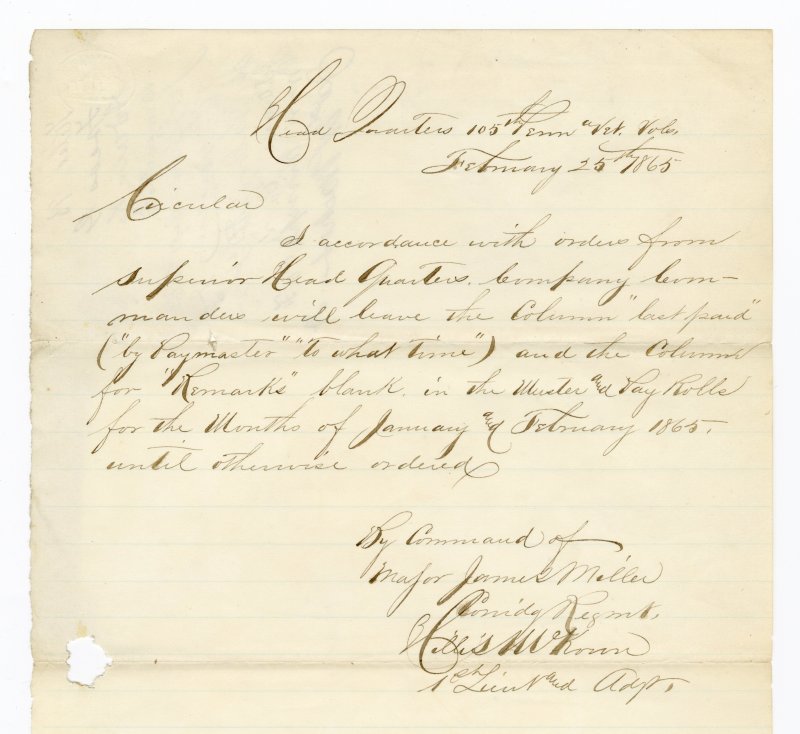 Head Quarters 105th Penna Vet. Vols.
February 25th 1865
Circular
I accordance with orders from
superior Head Quarters. Company Com-
manders will leave the Column "last paid"
("by Paymaster" "to what time") and the Column
for "Remarks" blank. in the Muster and Pay Rolls
for the Months of January and February 1865.
until otherwise ordered
By Command of
Major James Miller
Comdg Regmt.
Hillis McKown
1st Lieut and Adjt.